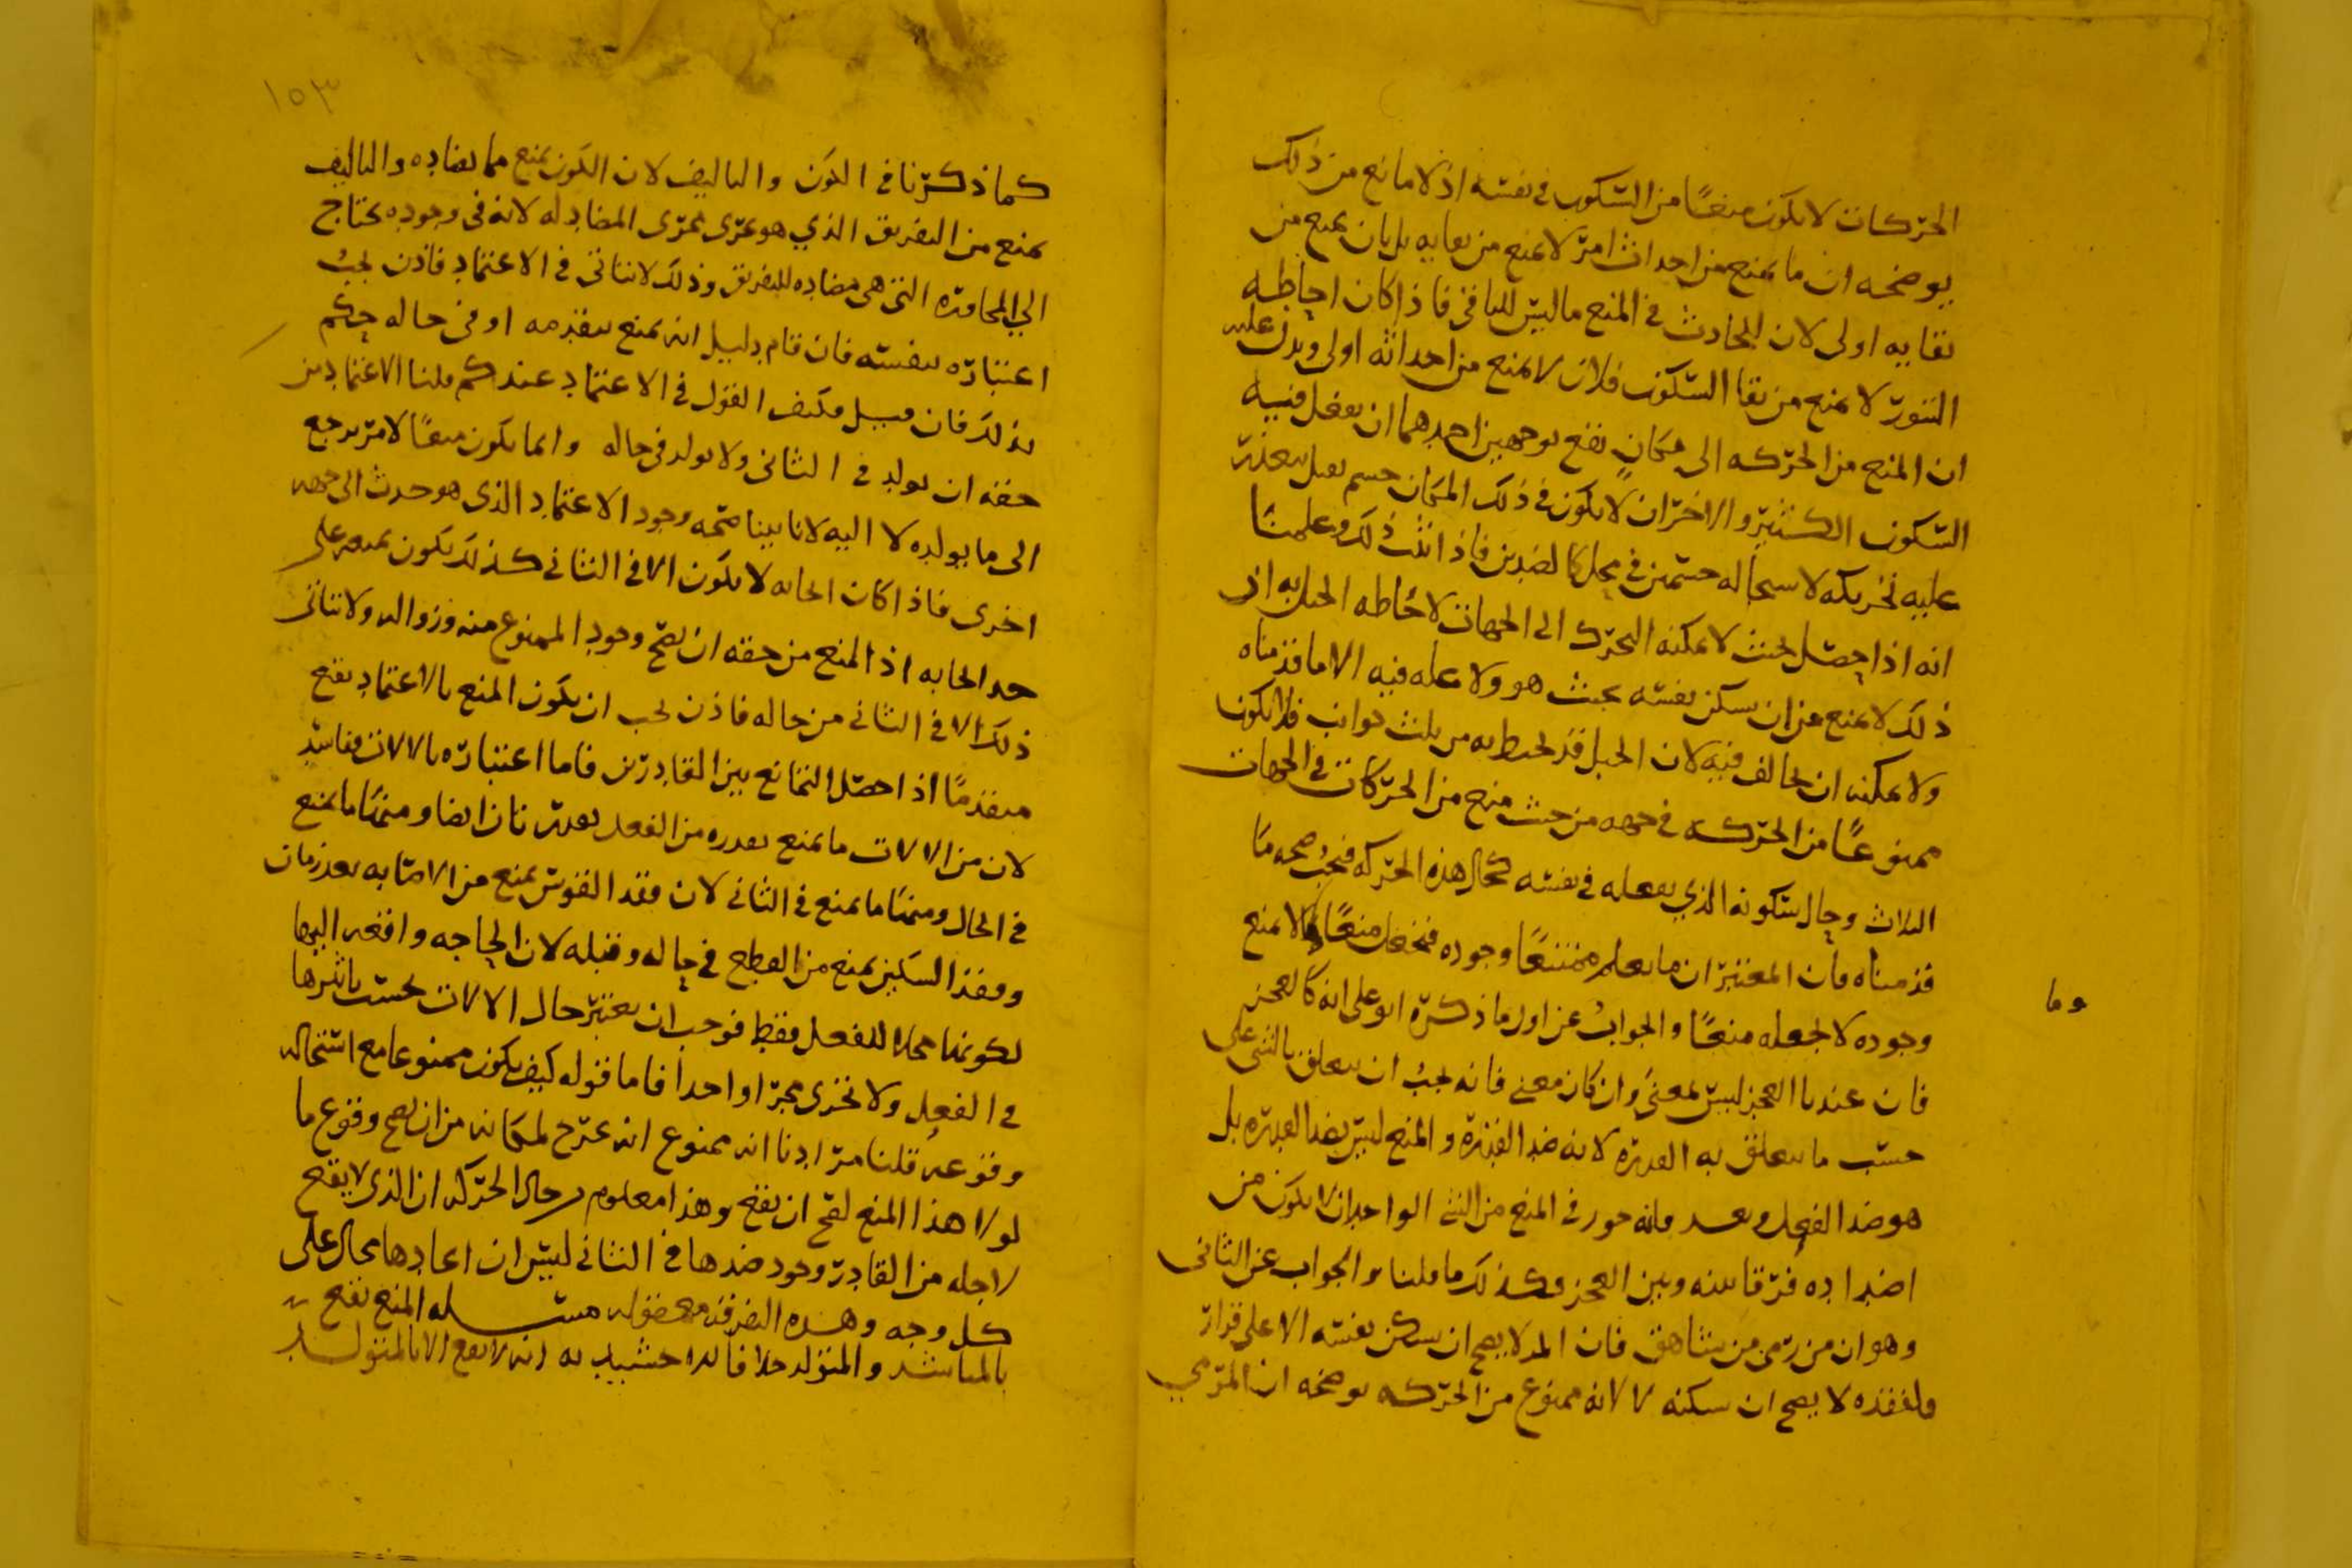 الحركات لا يكون منعًا من السكون في نفسه اذ لا مانع من ذلك
يوضحه ان ما يمنع من احداث امر لا يمنع من بقايه بل بان يمنع من
بقايه اولى لان للحادث في المنع ما ليس للباقي فاذا كان احاطه
التنور لا يمنع من بقا السكون فلان لا يمنع من احداثه اولى ويدل عليه
ان المنع من الحركه الى مكان يقع بوجهين احدهما ان يفعل فيه
السكون الكثير والاخر ان لا يكون في ذلك المكان جسم ثقيل يتعذر
عليه تحريكه لاستحاله جسمين في محل كالضدين فاذا ثبت ذلك وعلمنا
انه اذا حصل بحيث لا يمكنه التحرك الى الجهات لاحاطه الجبل به اذ
ذلك لا يمنع من ان يسكن نفسه بحيث هو ولا عله فيه الا ما قدمناه
ولا يمكنه ان يخالف فيه لان الجبل قد يحيط به من ثلث جوانب فلا يكون
ممنوعًا من الحركه في جهه من حيث منع من الحركات في الجهات
الثلاث وحال سكونه الذي يفعله في نفسه كحال هذه الحركه فيجب صحه ما
قدمناه فان المعتبر ان ما يعلم ممتنعًا وجوده فنجعل منعًا لا يمنع
وما
وجوده لا نجعله منعًا والجواب عن اول ما ذكره ابو علي انه كالعجز
فان عندنا العجز ليس بمعنى وان كان معنى فانه يجب ان يتعلق بالشي على
حسب ما يتعلق به القدره لانه ضد القدره والمنع ليس بضد القدره بل
هو ضد الفعل وبعد فانه جوز في المنع من الشي الواحد ان لا يكون من
اضداده فرقا بينه وبين العجز وكذلك ما قلنا والجواب عن الثاني
وهو ان من رمي من شاهق فان لا يصح ان يسكن نفسه الا على قرار
فلفقده لا يصح ان يسكنه لا لانه ممنوع من الحركه يوضحه ان المرمي
١٥٣
كما ذكرنا في الكون والتاليف لان الكون يمنع مما يضاده والتاليف
يمنع من التفريق الذي هو يجري مجرى المضاد له لانه في وجوده يحتاج
الى المجاوره التي هي مضاده للتفريق وذلك لا يتاتى في الاعتماد فاذن يجب
اعتباره بنفسه فان قام دليل انه يمنع بتقدمه او في حاله حكم
بذلك فان قيل فكيف القول في الاعتماد عندكم قلنا الاعتماد من
حقه ان يولد في الثاني ولا يولد في حاله وانما يكون منعًا لامر يرجع
الى ما يولده لا اليه لانا بينا صحه وجود الاعتماد الذي هو حدث الى جهه
اخرى فاذا كان ايجابه لا يكون الا في الثاني كذلك يكون منعه على
حد ايجابه اذ المنع من حقه ان يصح وجود الممنوع منه وزواله ولا يتاتى
ذلك الا في الثاني من حاله فاذن يجب ان يكون المنع بالاعتماد يقع
متقدمًا اذا حصل التمانع بين القادرين فاما اعتباره بالالات ففاسد
لان من الالات ما يمنع تعذره من الفعل بعد زمان ايضا ومنها ما يمنع
في الحال ومنها ما يمنع في الثاني لان فقد القوس يمنع من الاصابه بعد زمان
وفقد السكين يمنع من القطع في حاله وقبله لان الحاجه واقفه اليها
لكونها محلا للفعل فقط فوجب ان يعتبر حال الالات بحسب تاثيرها
في الفعل ولا تجري مجرًا واحدا فاما قوله كيف يكون ممنوعا مع استحاله
وقوعه قلنا مرادنا انه ممنوع انه يخرج لمكانه من ان يصح وقوع ما
لولا هذا المنع لصح ان يقع وهذا معلوم من حال الحركه ان الذي لا يقع
لاجله من القادر وجود ضدها في الثاني ليس ان ايجادها محال على
كل وجه وهذه التفرقه معقوله مسله المنع يقع
بالمباشر والمتولد خلافا انه لا يقع الا بالمتولد